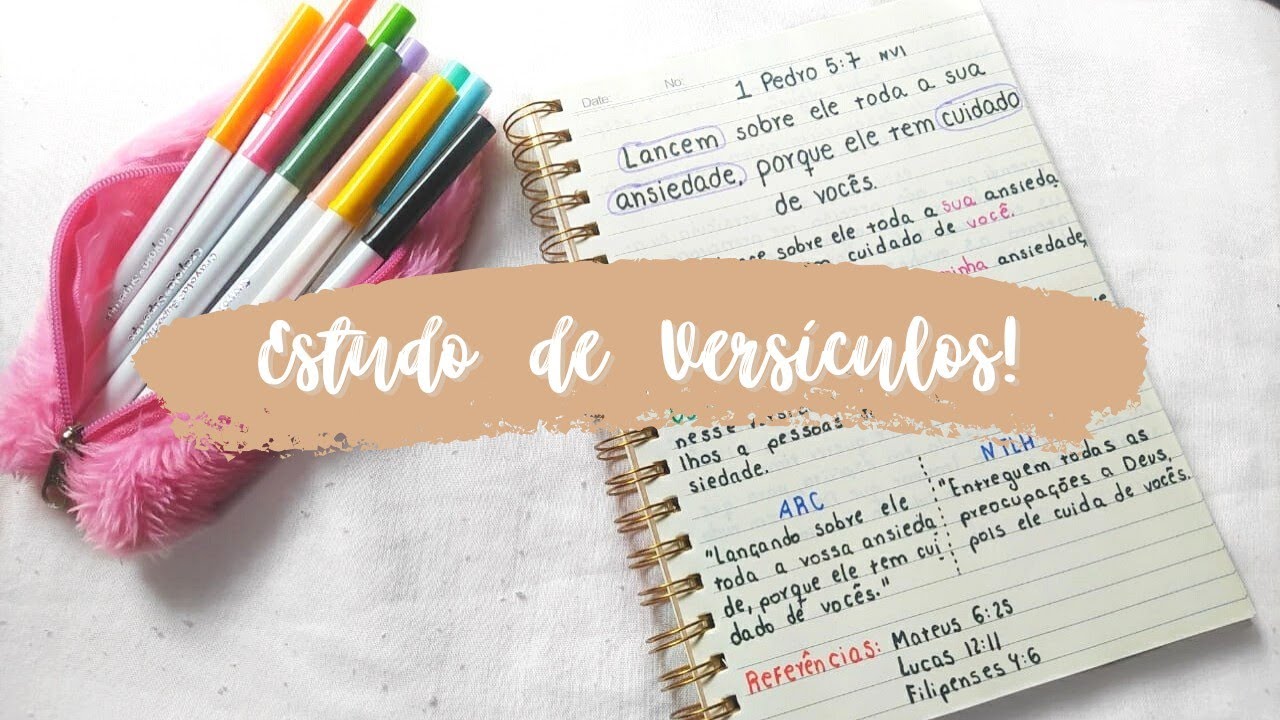 Date:
No:
1 Pedro 5:7 NVI
Lancem sobre ele toda a sua
ansiedade, porque ele tem cuidado
de vocês.
sobre ele toda a sua ansieda
cuidado de você.
minha ansiedade,
Estudo de Versículos!
nesse
lhos a pessoas
siedade.
ARC
"Lançando sobre ele
toda a vossa ansieda
de, porque ele tem cui-
dado de vocês."
NTLH
"Entreguem todas as
preocupações a Deus,
pois ele cuida de vocês.
Referências: Mateus 6:25
Lucas 12:11
Filipenses 4:6